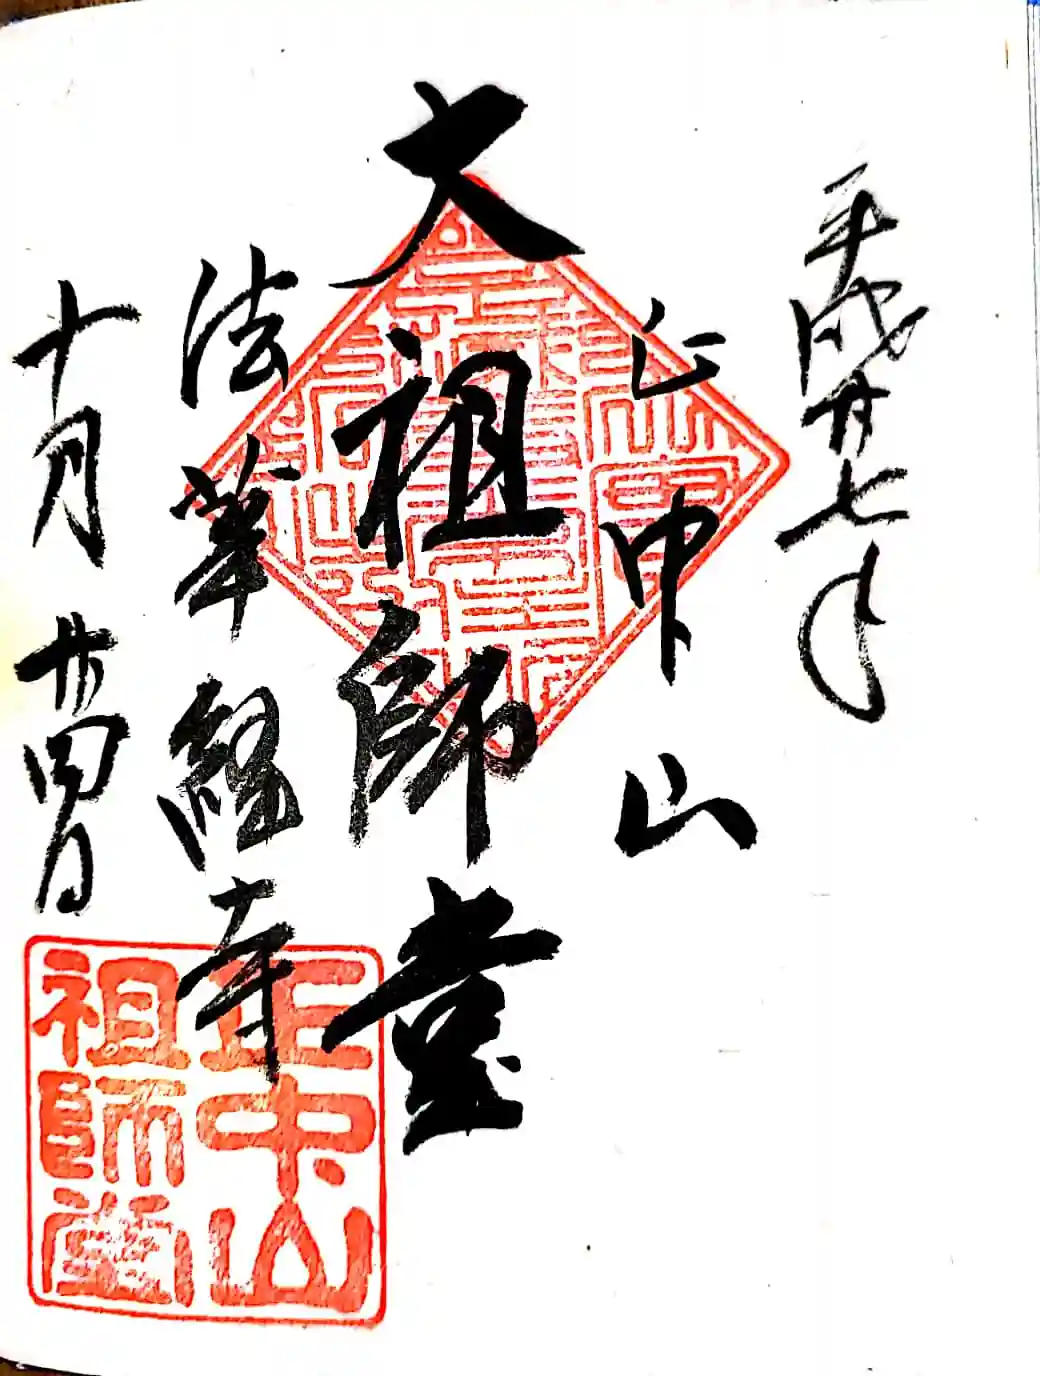 平成廿七年
正中山
大祖師堂
法華経寺
十月廿四日
正中山
祖師堂